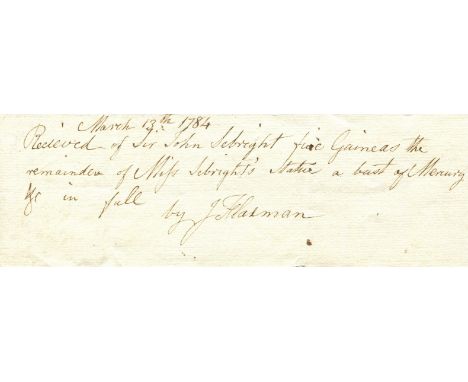 March 13th 1784
Recieved of Sir John Sebright five Gaineas the
remainder of Miss Sebright's Statue a bust of Mercury
&c in full
by J Flaxman